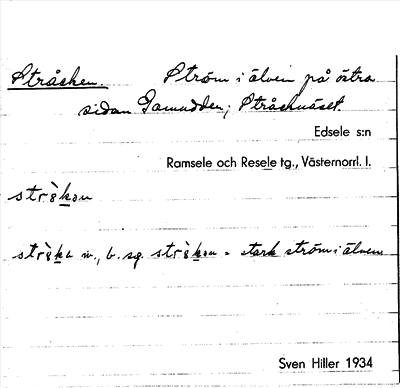 Stråken. Ström i älven på östra
sidan Gamudden; Stråknäset.
Edsele s:n
Ramsele och Resele tg., Västernorrl. l.
m., b. sg. = stark ström i älven
Sven Hiller 1934